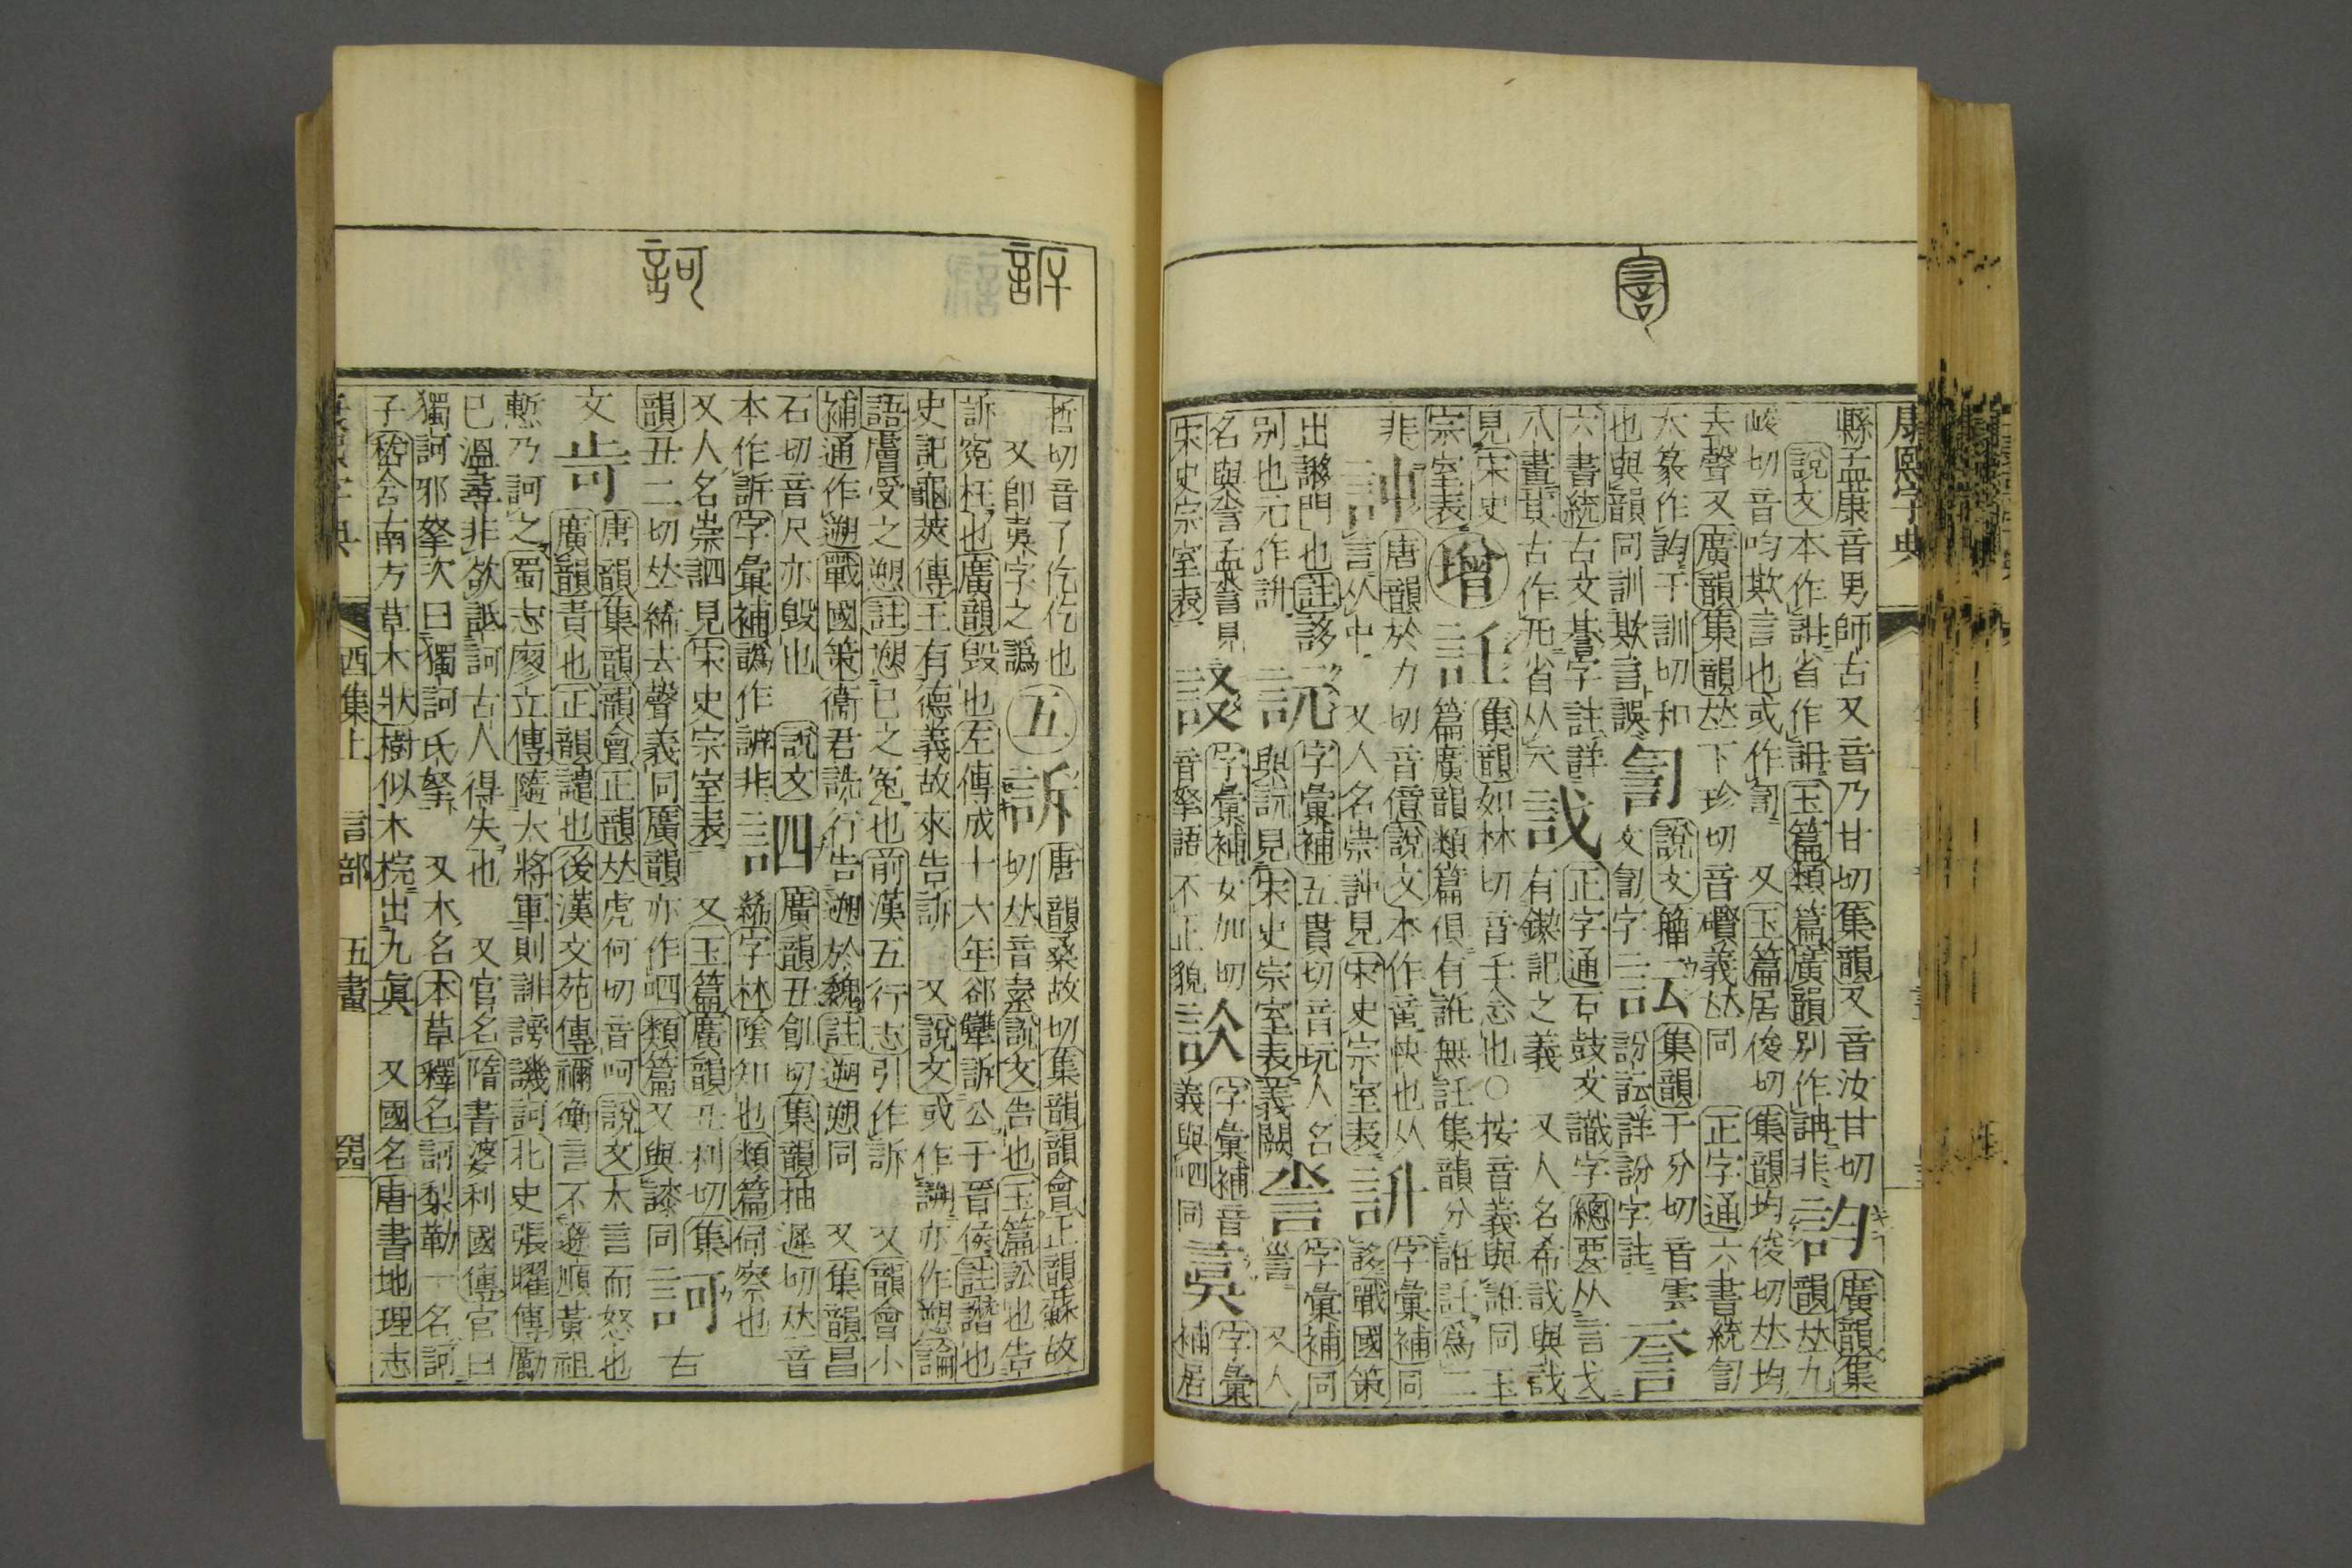 康熙字典
縣孟康音男師古又音乃甘切集韻又音汝甘切訽廣韻集
說文本作諎省作詌玉篇類篇廣韻別作詽非韻𠀤九
峻切音呁欺言也或作訇又玉篇居俊切集韻均俊切𠀤均
去聲又廣韻集韻𠀤下珍切音礥義𠀤同正字通六書統訇
大篆作訽于訓切和說文籀訟集韻于分切音雲
也與韻同訓欺言誤訇文訇字訜訟詳訜字註
六書統古文朞字註詳正字通石鼓文識字總要从言戈
八畫其古作丌省从天䛊有鐖記之義又人名希䛊與䛊
見宋史集韻如林切音壬念也○按音義與誑同玉
宗室表增䚾篇廣韻類篇俱有詆無託集韻分誑託爲二
非𧥢唐韻於力切音億說文本作啻快也从字彙補同
言从中又人名崇訷見宋史宗室表訨誃戰國策
出謻門也註誃字彙補五貴切音玩人名字彙補同
別也元作訮䚽與訦見宋史宗室表義闕㖠言又人
名與㖠孟言見字彙補女加切字彙補音字彙
宋史宗室表䚼音拏語不正貌訤義與呬同䚿補居
訴
訶
悊切音了仡仡也唐韻桑故切集韻韻會正韻蘇故
又卽叀字之譌五訴切𠀤音素說文告也玉篇訟也告
訴冤枉也廣韻毀也左傳成十六年郤犨訴公于晉侯註譖也
史記龜筴傳王有德義故來告訴又說文或作謭亦作愬論
語膚受之愬註愬已之冤也前漢五行志引作訴又韻會小
補通作遡戰國策衞君詵行告遡於魏註遡愬同又集韻昌
石切音尺亦毀也說文訵廣韻丑創切集韻抽遲切𠀤音
本作訴字彙補譌作謭非絺字林陰知也類篇伺察也
又人名崇訵見宋史宗室表又玉篇廣韻丑利切集
韻丑二切𠀤絺去聲義同廣韻亦作呬類篇又與誺同訶古
文㱒唐韻集韻韻會正韻𠀤虎何切音呵說文大言而怒也
廣韻責也正韻譴也後漢文苑傳禰衡言不遜順黃祖
慙乃訶之蜀志廖立傳隨大將軍則誹謗譏訶北史張曜傳勵
已溫尋非欲詆訶古人得失也又官名隋書婆利國傳官曰
獨訶邪拏次曰獨訶氏拏又木名本草釋名訶黎勒一名訶
子嵇含南方草木狀樹似木梡出九眞又國名唐書地理志
酉集上言部五畫